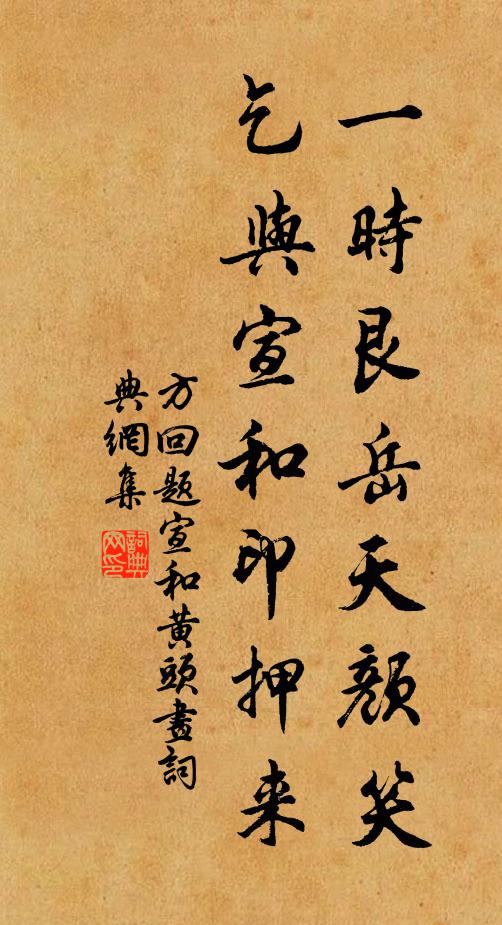 一時艮岳天顏笑
乞與宣和印押来
方回題宣和黃頭畫詞
典網集
詞典網印